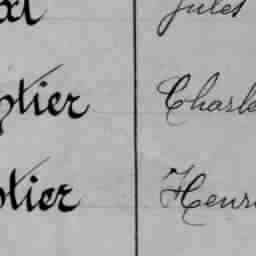 Jules
ptier Charl
tier Henr